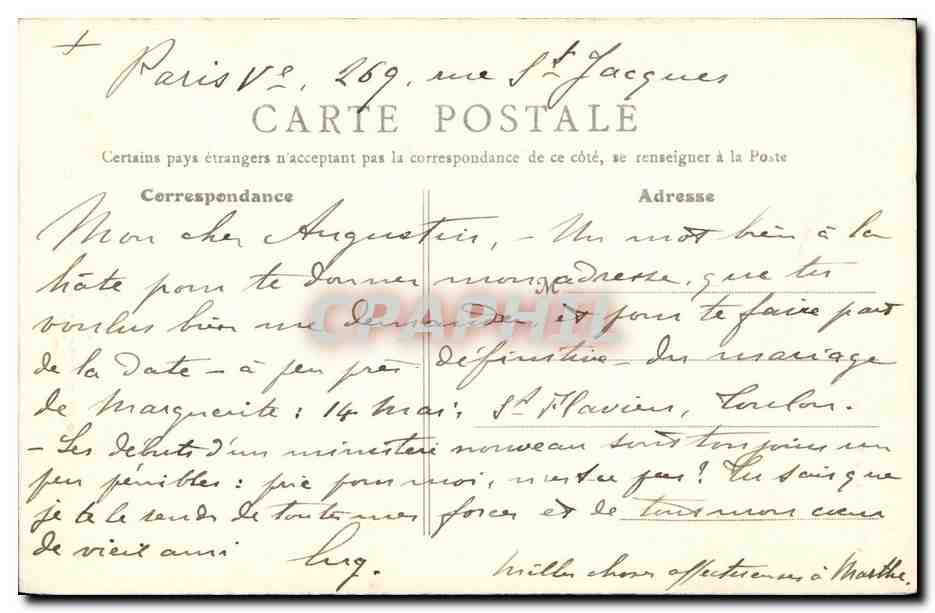 +
Paris Ve, 269, rue St Jacques
CARTE POSTALE
Certains pays étrangers n'acceptent pas la correspondance de ce côté, se renseigner à la Poste
Correspondance
Adresse
Mon cher Augustin, - Un mot bien à la
hâte pour te donner mon adresse, que tu
voulus bien me demander, et pour te faire part
de la date - à peu près définitive - du mariage
de Marguerite : 14 mai, St Flavien, Toulon.
- Les débuts d'un ministère nouveau sont toujours un
peu pénibles : prie pour moi, n'est-ce pas ? Tu sais que
je te le rends de toutes mes forces et de tout mon cœur
de vieil ami
mille choses affectueuses à Marthe.
CPAPHIL